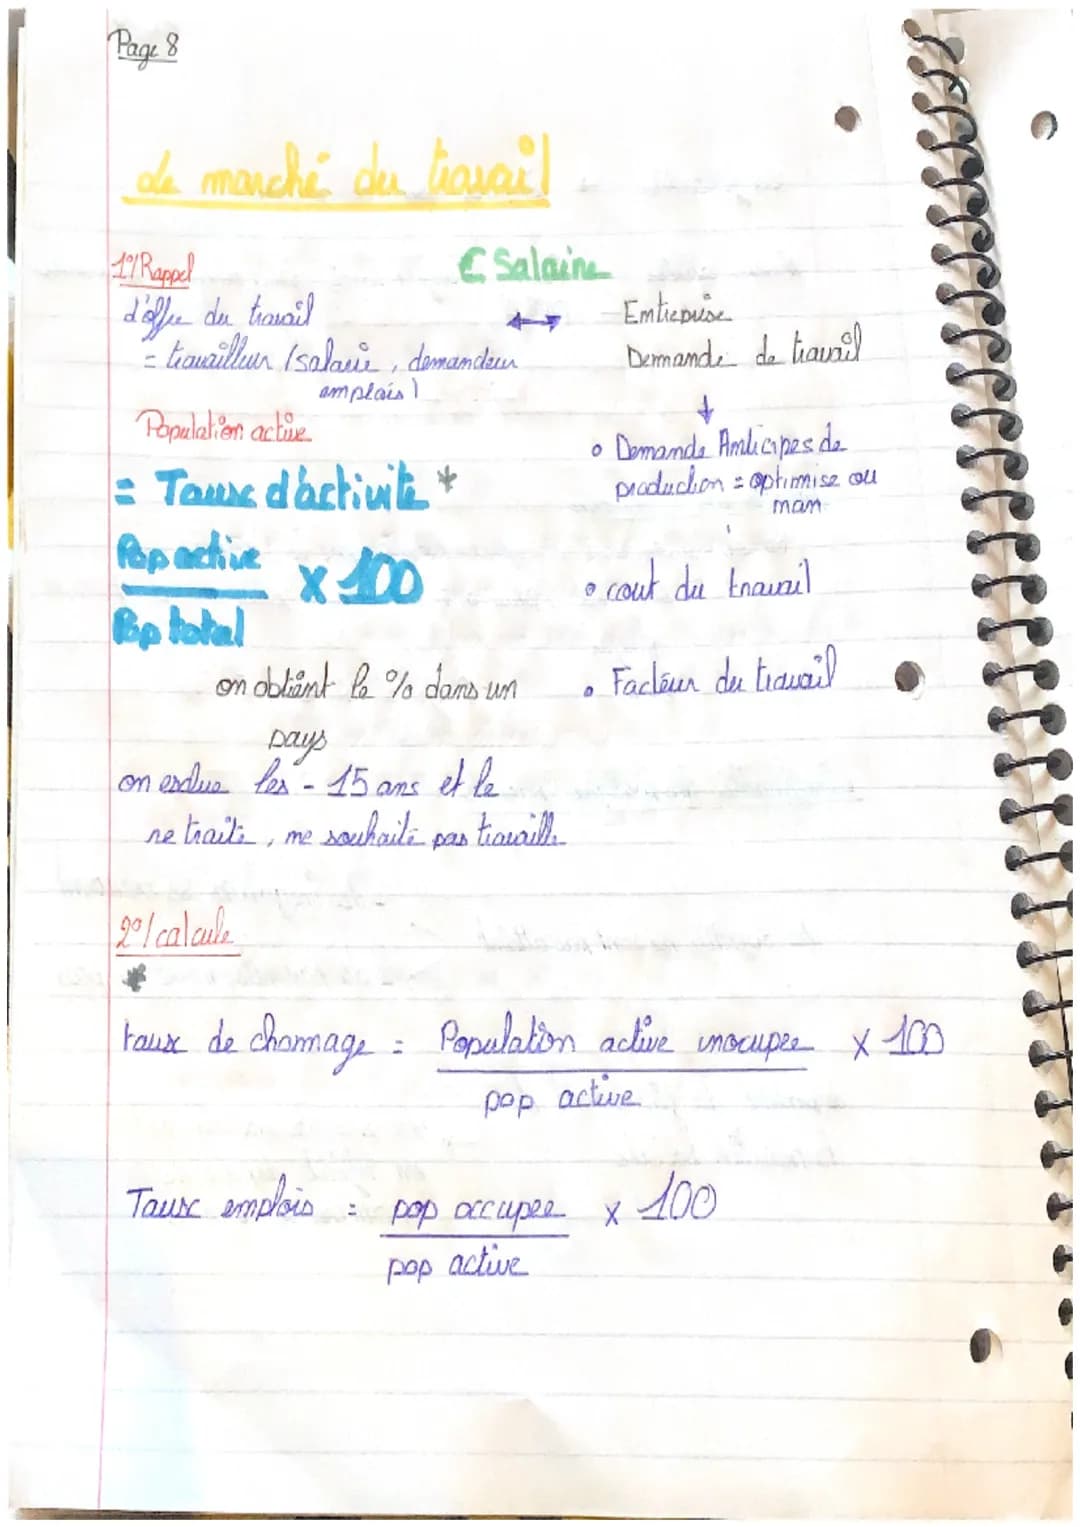 Page 8
Le marché du travail
1°/ Rappel
€ Salaire
L'offre du travail
= travailleur (salarié, demandeur
emplois)
↔
Entreprise
Demande de travail
↓
Population active
= Taux d'activité *
Pop active
x 100
Pop total
on obtient le % dans un
pays
on exclue les - 15 ans et le
retraité, ne souhaite pas travaille
• Demande Anticipes de
production = optimise ou
man.
• cout du travail
• Facteur du travail
2°/ calcule
*
taux de chomage = Population active inocupée x 100
pop active
Taux emplois = pop occupée x 100
pop active